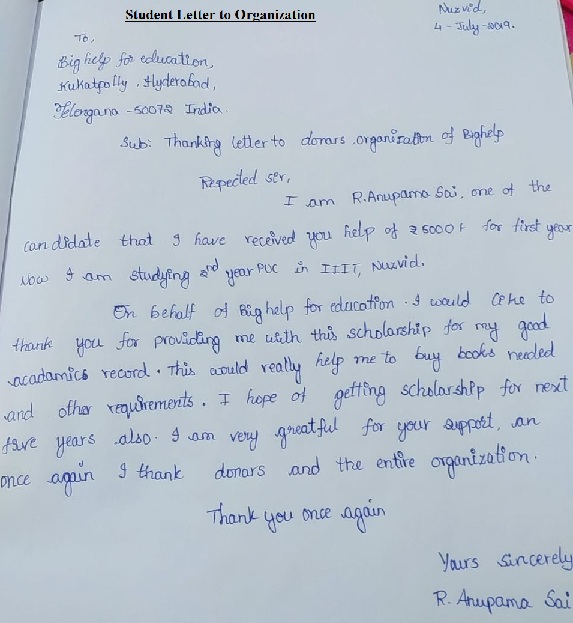 Student Letter to Organization
Nuzvid,
4 - July - 2019.
To,
Big help for education,
Kukatpolly, Hyderabad,
Telengana - 50072 India.
Sub: Thanking letter to donars organization of Bighelp
Repected ser,
I am R.Anupama Sai, one of the
candidate that I have received you help of ₹5000/- for first year
Now I am studying 2nd year PUC in IIIT, Nuzvid.
On behalf of Big help for education. I would like to
thank you for providing me with this scholarship for my good
acadamics record. This would really help me to buy books needed
and other requirements. I hope of getting scholarship for next
five years also. I am very greatful for your support, an
once again I thank donars and the entire organization.
Thank you once again
Yours sincerely
R. Anupama Sai